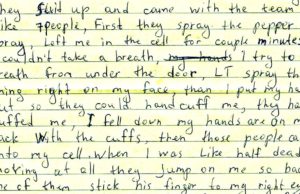 hey suit up and came with the team
ike 7 people, First they spray the pepper
pray, Left me in the cell for couple minutes
couldn't take a breath, I try to
reath from under the door, LT spray th
hing right on my face, than I put my ha
ut so they could handcuff me, they ha
uffed me, I fell down my hands are on m
ack With the cuffs, then those people ca
nto my cell. when I was like half dead
moking out all they jump on me so ha
ne of them stick his finger to my right e